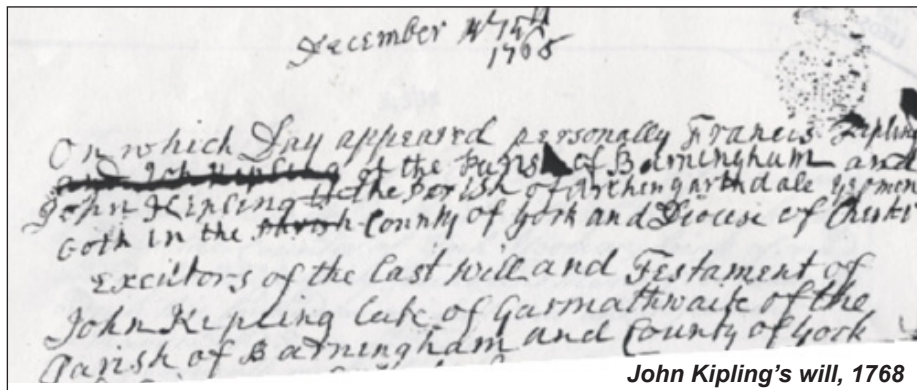 December 14th 75
1768
On which Day appeared personally Francis Kipling
and John Kipling of the Parish of Barningham and
John Kipling of the Parish of Arthengarthdale yeomen
both in the Parish County of York and Diocese of Chester
Excitors of the Last Will and Testament of
John Kipling Late of Garmathwaite of the
Parish of Barningham and County of York
John Kipling's will, 1768